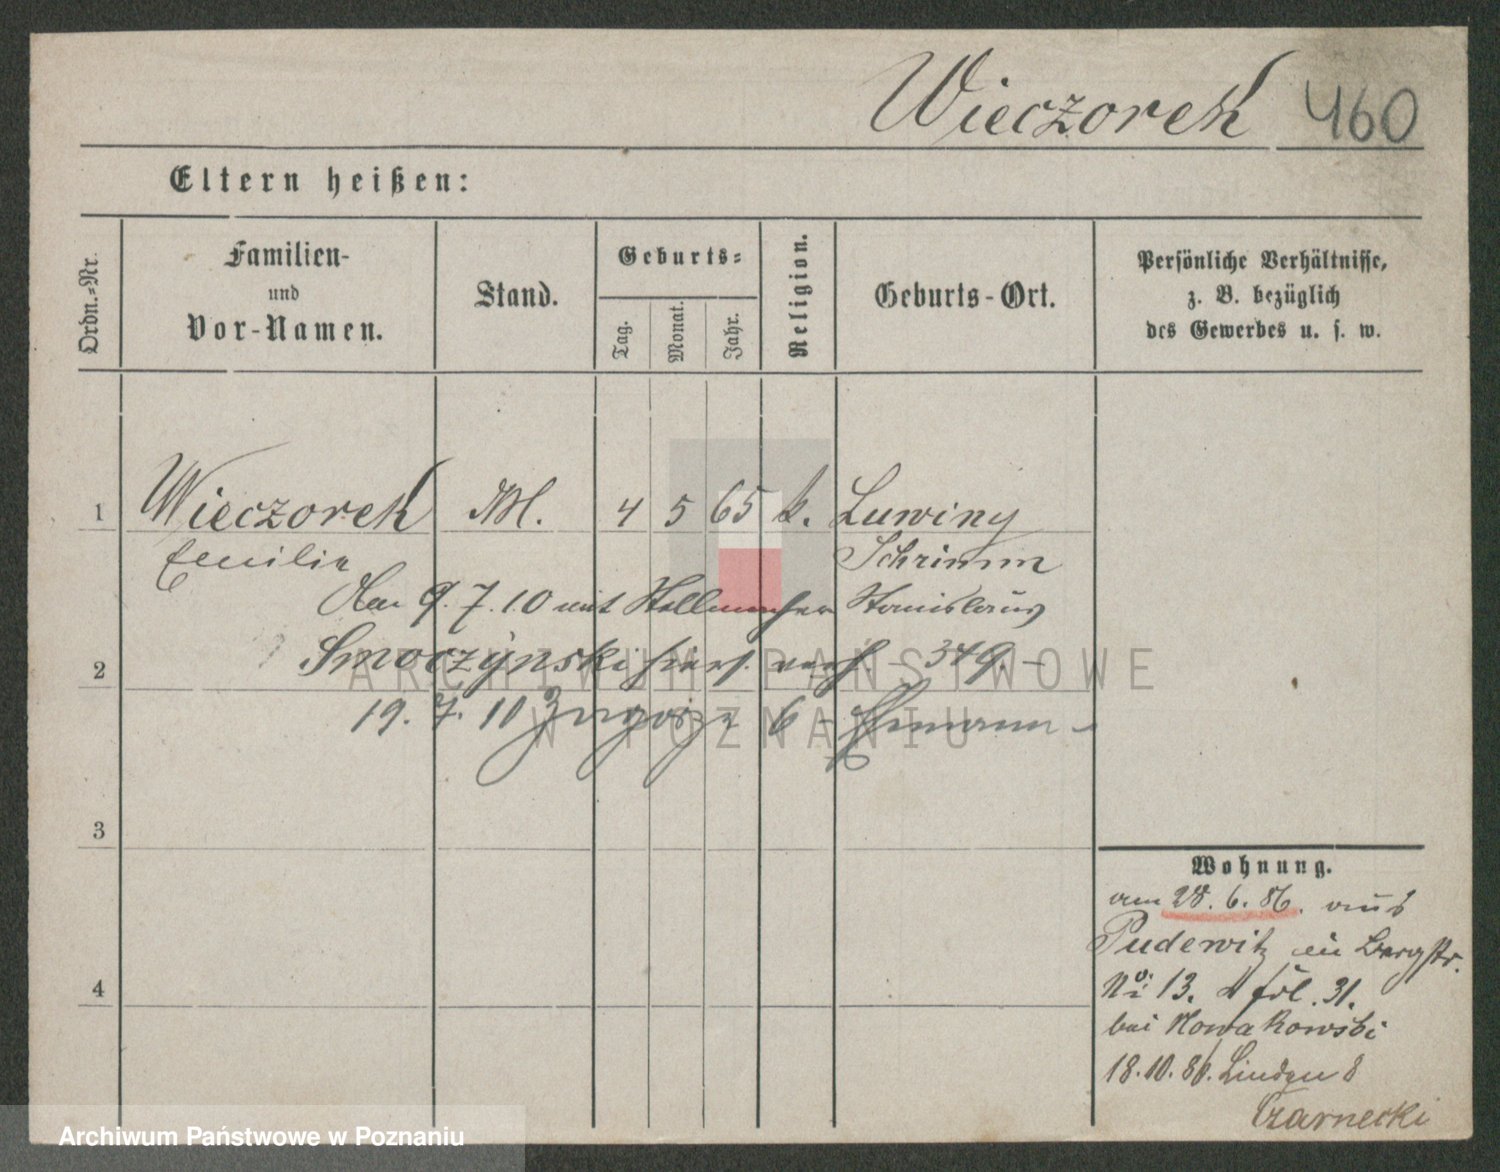 Wieczorek 460
Eltern heißen:
Ordn.-Nr.
Familien-
und
Vor-Namen.
Stand.
Geburts-
Tag.
Monat.
Jahr.
Religion.
Geburts-Ort.
Persönliche Verhältnisse,
z. B. bezüglich
des Gewerbes u. s. w.
1 Wieczorek M. 4 5 65 k. Luwiny
Emilie Schrimm
Am 9.7.10 mit Stellmacher Stanislaus
2 Smoczyński hiers. verh. 349. –
19. 7. 10 6 –
3
4
Wohnung.
am 28. 6. 86. aus
Pudewitz in Bergstr.
No 13. fol. 31.
bei Nowakowski
18.10.86. Linden 8
Czarnecki
ARCHIWUM PAŃSTWOWE
W POZNANIU
Archiwum Państwowe w Poznaniu